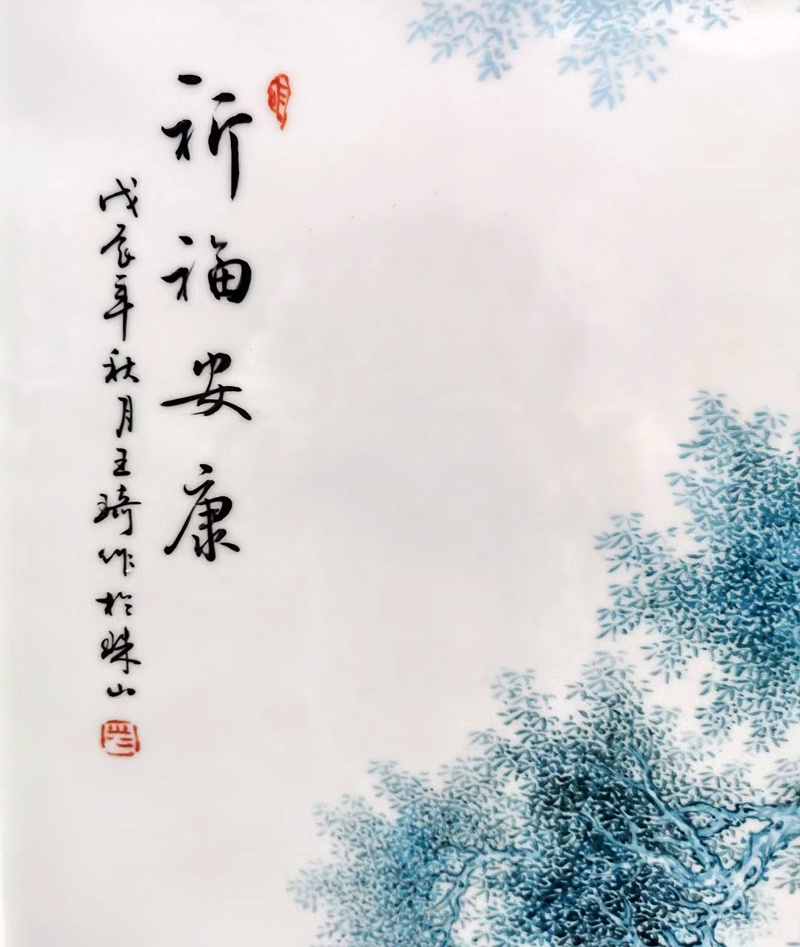 祈福安康
戊辰年秋月王琦作於珠山